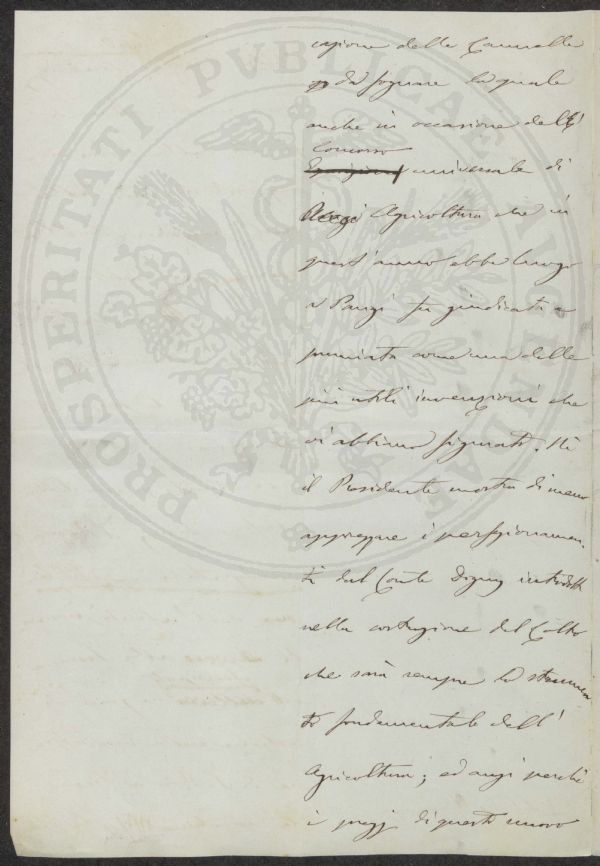 PROSPERITATI PUBLICAE AUGENDAE
cazione delle Cannelle
da fognare la quale
anche in occasione dell'
Concorso
Esposizione universale di
Agricoltura che in
quest'anno ebbe luogo
a Parigi fu giudicata e
premiata come una delle
più utili invenzioni che
vi abbiano figurato. Nè
il Presidente mostra di meno
apprezzare i perfezionamen
ti dal Conte Digny introdotti
nella costruzione del Coltro
che sarà sempre lo strumen
to fondamentale dell'
Agricoltura; ed anzi perchè
i prezzi di questo nuovo